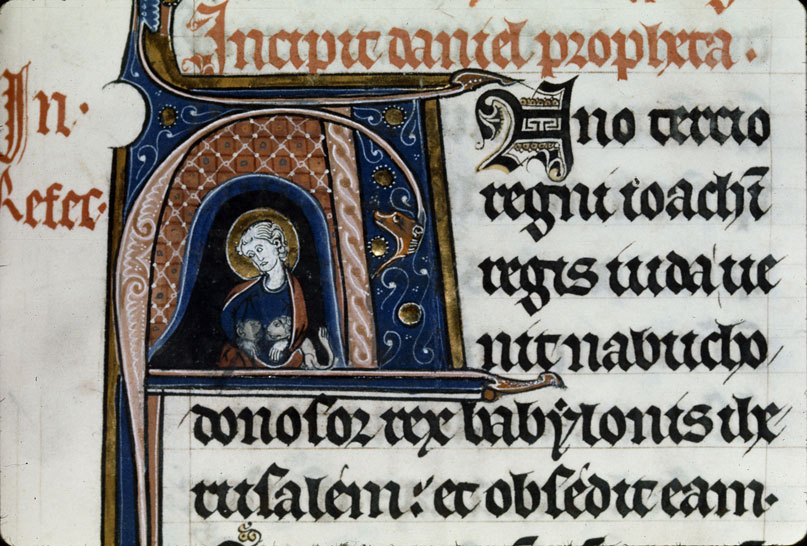 Incipit daniel propheta.
In.
Refec.
Anno tercio
regni ioachī
regis iuda ue
nit nabucho
donosor rex babẏlonis ihe
rusalem: et obsedit eam.